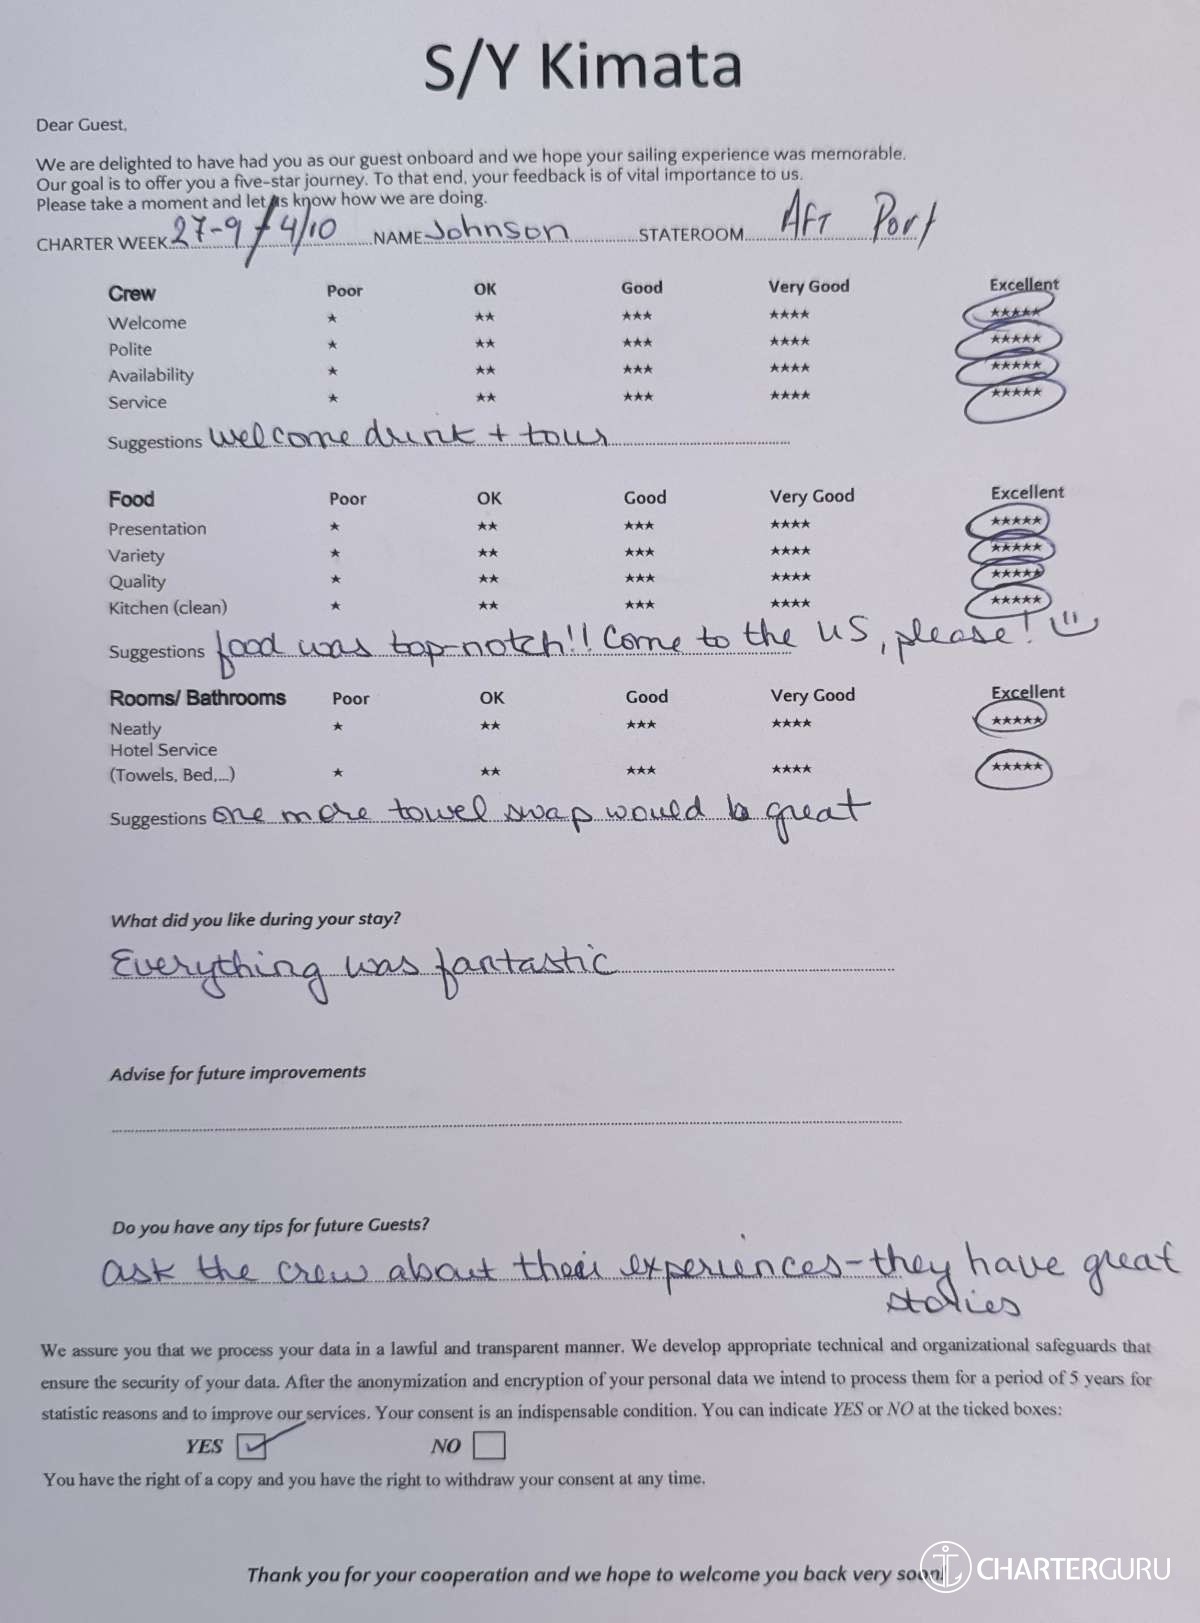 S/Y Kimata
Dear Guest,
We are delighted to have had you as our guest onboard and we hope your sailing experience was memorable.
Our goal is to offer you a five-star journey. To that end, your feedback is of vital importance to us.
Please take a moment and let us know how we are doing.
CHARTER WEEK 27-9 / 4/10 NAME Johnson STATEROOM Aft Port
Crew Poor OK Good Very Good Excellent
Welcome ★ ★★ ★★★ ★★★★ ★★★★★
Polite ★ ★★ ★★★ ★★★★ ★★★★★
Availability ★ ★★ ★★★ ★★★★ ★★★★★
Service ★ ★★ ★★★ ★★★★ ★★★★★
Suggestions welcome drink + tour
Food Poor OK Good Very Good Excellent
Presentation ★ ★★ ★★★ ★★★★ ★★★★★
Variety ★ ★★ ★★★ ★★★★ ★★★★★
Quality ★ ★★ ★★★ ★★★★ ★★★★★
Kitchen (clean) ★ ★★ ★★★ ★★★★ ★★★★★
Suggestions food was top-notch!! Come to the US, please!
Rooms/ Bathrooms Poor OK Good Very Good Excellent
Neatly ★ ★★ ★★★ ★★★★ ★★★★★
Hotel Service
(Towels, Bed,...) ★ ★★ ★★★ ★★★★ ★★★★★
Suggestions one more towel swap would be great
What did you like during your stay?
Everything was fantastic
Advise for future improvements
Do you have any tips for future Guests?
ask the crew about their experiences - they have great
stories
We assure you that we process your data in a lawful and transparent manner. We develop appropriate technical and organizational safeguards that
ensure the security of your data. After the anonymization and encryption of your personal data we intend to process them for a period of 5 years for
statistic reasons and to improve our services. Your consent is an indispensable condition. You can indicate YES or NO at the ticked boxes:
YES NO
You have the right of a copy and you have the right to withdraw your consent at any time.
Thank you for your cooperation and we hope to welcome you back very soon!
CHARTERGURU